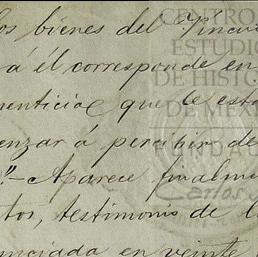 los bienes del
á él corresponde en
menticia que se est
enzar á percibir de
Aparece finalm
tos, testimonio de l
unciada en veinte
CENTRO
ESTUDI
DE HISTO
DE MÉX
FUNDA
Carlos